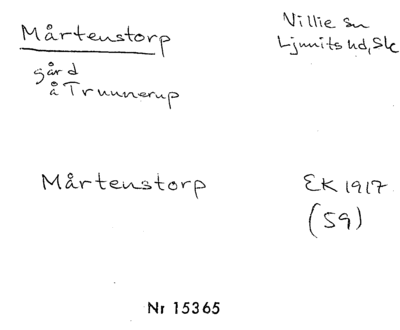 Mårtenstorp
Villie sn
Ljunits hd, Sk
gård
å Trunnerup
Mårtenstorp
EK 1917
(59)
Nr 15365